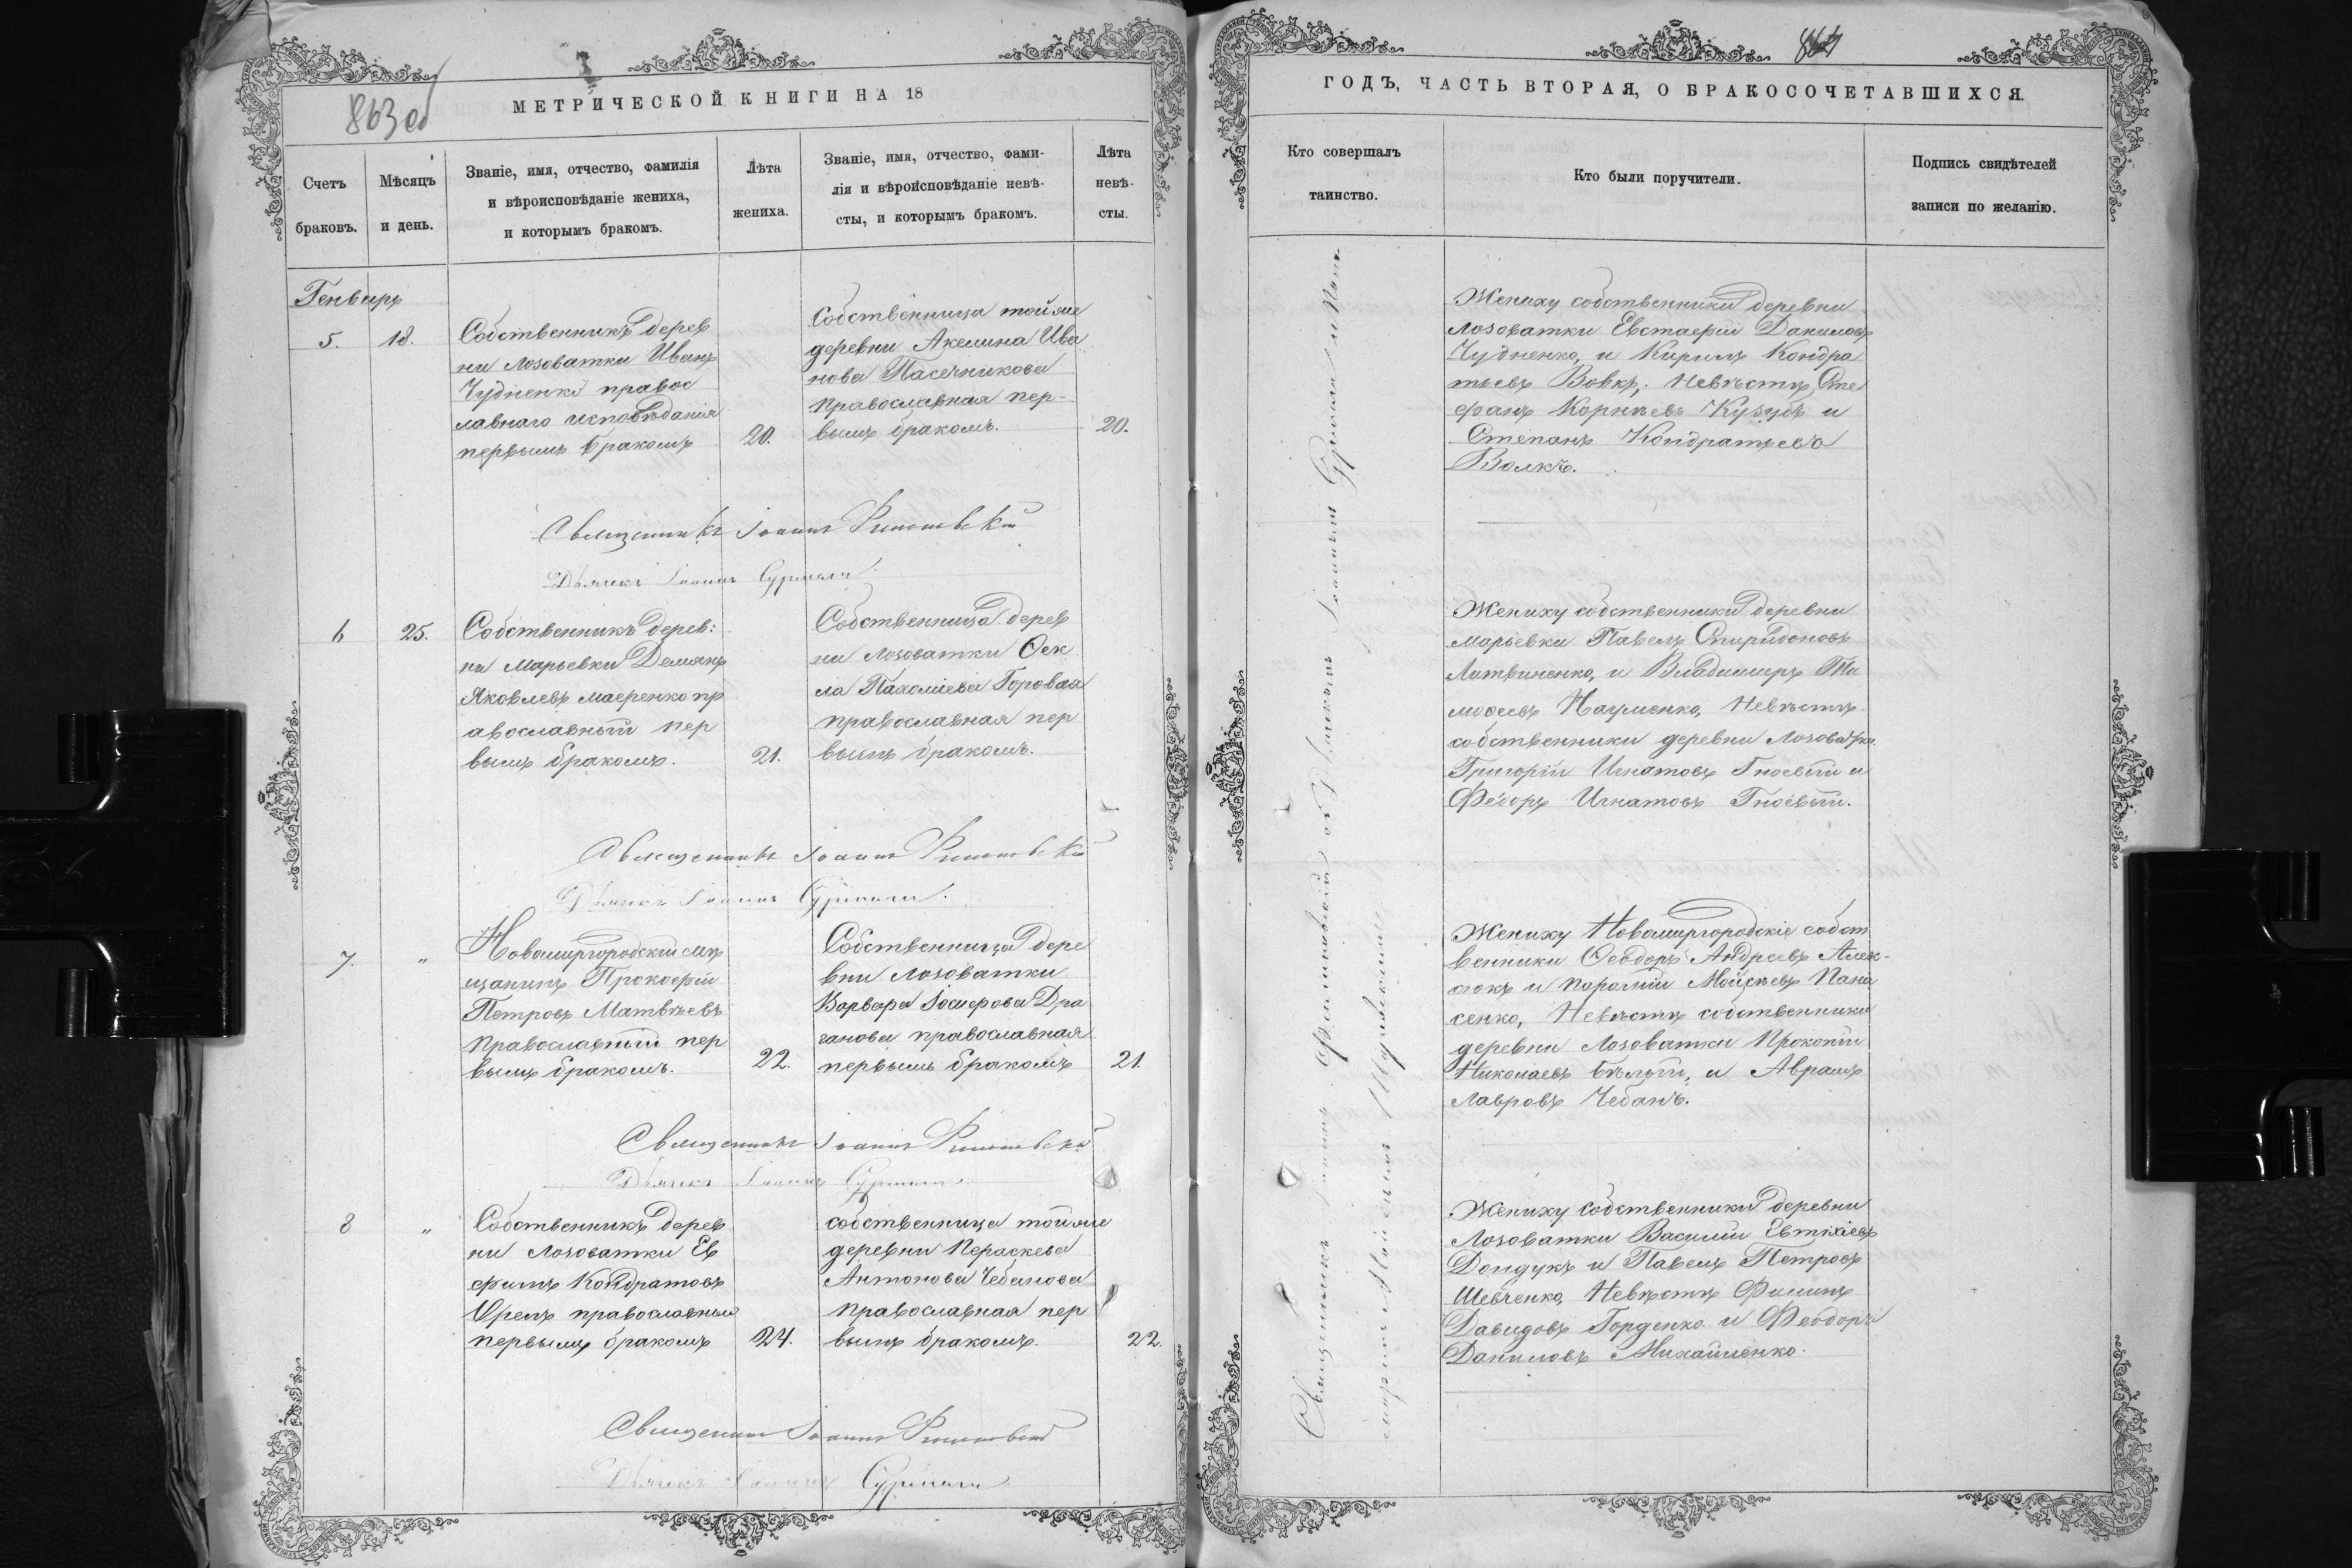 863 об
МЕТРИЧЕСКОЙ КНИГИ НА 18
Счетъ браковъ.
Мѣсяцъ и день.
Званіе, имя, отчество, фамилія
и вѣроисповѣданіе жениха,
и которымъ бракомъ.
Лѣта жениха.
Званіе, имя, отчество, фами-
лія и вѣроисповѣданіе невѣ-
сты, и которымъ бракомъ.
Лѣта невѣ-
сты.
Генварь
5. 18.
Собственникъ дерев
ни Лозоватки Иванъ
Чудненко правос
лавнаго исповѣданія
первымъ бракомъ
20.
Собственница тойже
деревни Акелина Ива
нова Пасечникова
православная пер-
вымъ бракомъ.
20.
Священникъ Іоаннъ
Дьячекъ Іоаннъ
6 25.
Собственникъ дерев:
ни Марьевки Демянъ
Яковлевъ Маеренко пр
авославный пер
вымъ бракомъ.
21.
Собственница дерев
ни Лозоватки Фек
ла Пахоміева Горовая
православная пер
вымъ бракомъ.
Священникъ Іоаннъ
Дьячекъ Іоаннъ
7. "
Новомиргородскій мѣ
щанинъ Прокофій
Петровъ Матвѣевъ
православный пер
вымъ бракомъ.
22.
Собственница дере
вни Лозоватки
Варвара Іосифова Дра
ганова православная
первымъ бракомъ
21.
Священникъ Іоаннъ
Дьячекъ Іоаннъ
8 "
Собственникъ дерев
ни Лозоватки Ев
фимъ Кондратовъ
Орелъ православный
первымъ бракомъ
24.
собственница тойже
деревни Пераскева
Антонова Чебанова
православная пер
вымъ бракомъ.
22.
Священникъ Іоаннъ
Дьячекъ Іоаннъ
864
ГОДЪ, ЧАСТЬ ВТОРАЯ, О БРАКОСОЧЕТАВШИХСЯ.
Кто совершалъ
таинство.
Кто были поручители.
Подпись свидѣтелей
записи по желанію.
Священникъ Іоаннъ
Жениху собственники деревни
Лозоватки Евстафій Даниловъ
Чудненко, и Кирилъ Кондра
тьевъ Вовкъ; Невѣсты Сте
фанъ Корнѣевъ Кузубъ и
Степанъ Кондратьевъ
Волкъ.
Жениху собственники деревни
Марьевки Павелъ Спиридоновъ
Литвиненко, и Владимиръ Ти
мофеевъ Науменко, Невѣсты
собственники деревни Лозоватки
Григорій Игнатовъ Гноевый и
Федоръ Игнатовъ Гноевый.
Жениху Новомиргородскіе собст
венники Феодоръ Андреевъ Алек-
сюкъ и Парфій Мойсѣевъ Пана
сенко, Невѣсты собственники
деревни Лозоватки Прокопій
Николаевъ Бѣлый, и Аврамъ
Лавровъ Чебанъ.
Жениху собственники деревни
Лозоватки Василій Евтихіевъ
Дондукъ и Павелъ Петровъ
Шевченко, Невѣсты Филипъ
Давидовъ Горденко и Феодоръ
Даниловъ Михайленко.